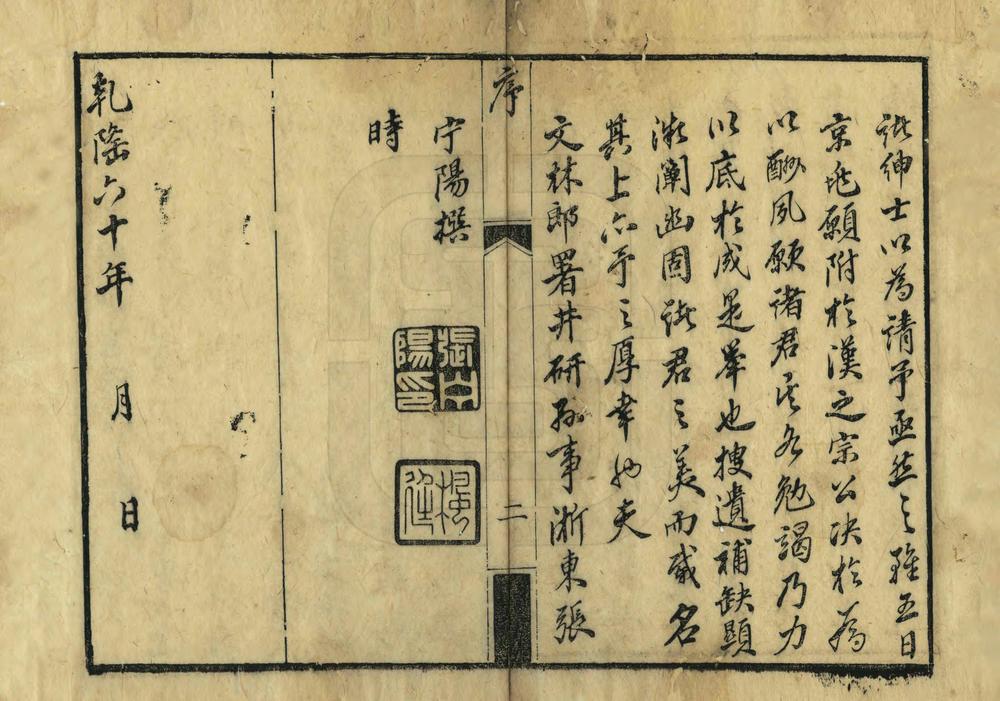 诸绅士以為请予亟然之雖五日
京兆願附於漢之宗公决於為
以酬夙願諸君其各勉竭乃力
以底於成是举也搜遺補缺顯
微闡幽固諸君之美而咸名
其上亦予之厚幸也夫
文林郎署井研縣事浙東張
宁陽撰
時
乾隆六十年 月 日
序
二
張宁陽印